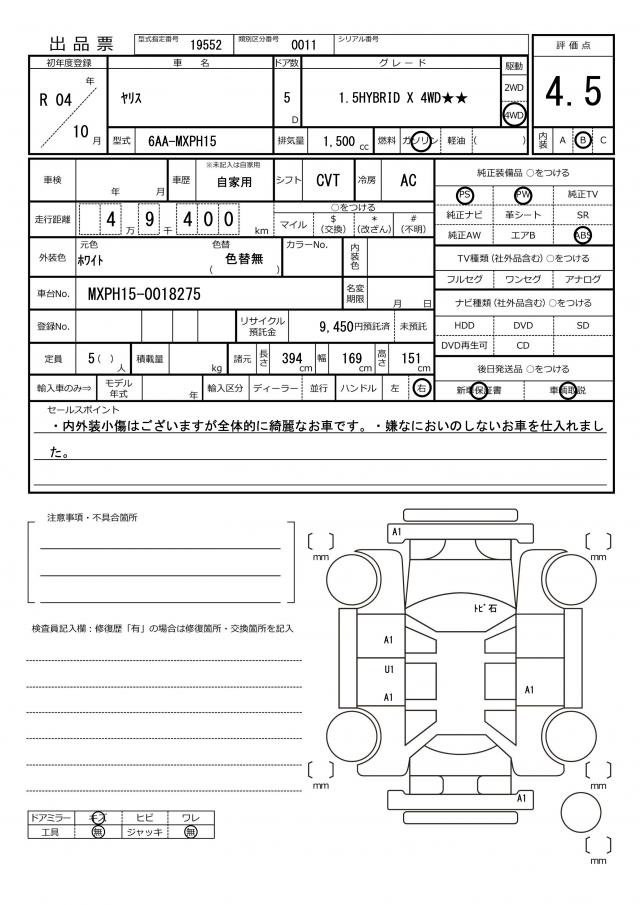 出品票 型式指定番号 19552 類別区分番号 0011 シリアル番号
評価点
4.5
内装 A B C
初年度登録 車名 ドア数 グレード 駆動
R 04 年 ヤリス 5 D 1.5HYBRID X 4WD★★ 2WD
10 月 4WD
型式 6AA-MXPH15 排気量 1,500 cc 燃料 ガソリン 軽油 ( )
車検 年 月 車歴 ※未記入は自家用 自家用 シフト CVT 冷房 AC
走行距離 4 9 4 0 0 万 千 km
○をつける
マイル $ (交換) * (改ざん) # (不明)
外装色 元色 ホワイト 色替 色替無 ( ) カラーNo. 内装色
車台No. MXPH15-0018275 名変期限 月 日
登録No. リサイクル預託金 9,450円預託済 未預託
定員 5 ( ) 人 積載量 kg 諸元 長さ 394 cm 幅 169 cm 高さ 151 cm
輸入車のみ⇒ モデル年式 年 輸入区分 ディーラー 並行 ハンドル 左 右
純正装備品 ○をつける
PS PW 純正TV
純正ナビ 革シート SR
純正AW エアB ABS
TV種類 (社外品含む) ○をつける
フルセグ ワンセグ アナログ
ナビ種類 (社外品含む) ○をつける
HDD DVD SD
DVD再生可 CD
後日発送品 ○をつける
新車保証書 車輌取説
セールスポイント
・内外装小傷はございますが全体的に綺麗なお車です。・嫌なにおいのしないお車を仕入れまし
た。
注意事項・不具合箇所
検査員記入欄：修復歴「有」の場合は修復箇所・交換箇所を記入
A1
mm
mm
トビ石
A1
U1
A1
A1
mm
mm
A1
mm
ドアミラー キズ ヒビ ワレ
工具 無 ジャッキ 無